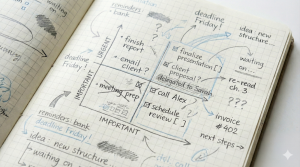 reminders
- bank
deadline
Friday!
idea - new
structure...
waiting
on
URGENT
- finish
report
- email
client?
finalize
presentation [ ]
client
proposal?
delegated to Sarah
- re-read
ch. 3
???
deadline
Friday!
- meeting prep
call Alex
schedule
review [ ]
???
- invoice
#402
IMPORTANT
next steps
reminders bank
deadline Friday!
idea - new structure
waiting on
IMPORTANT